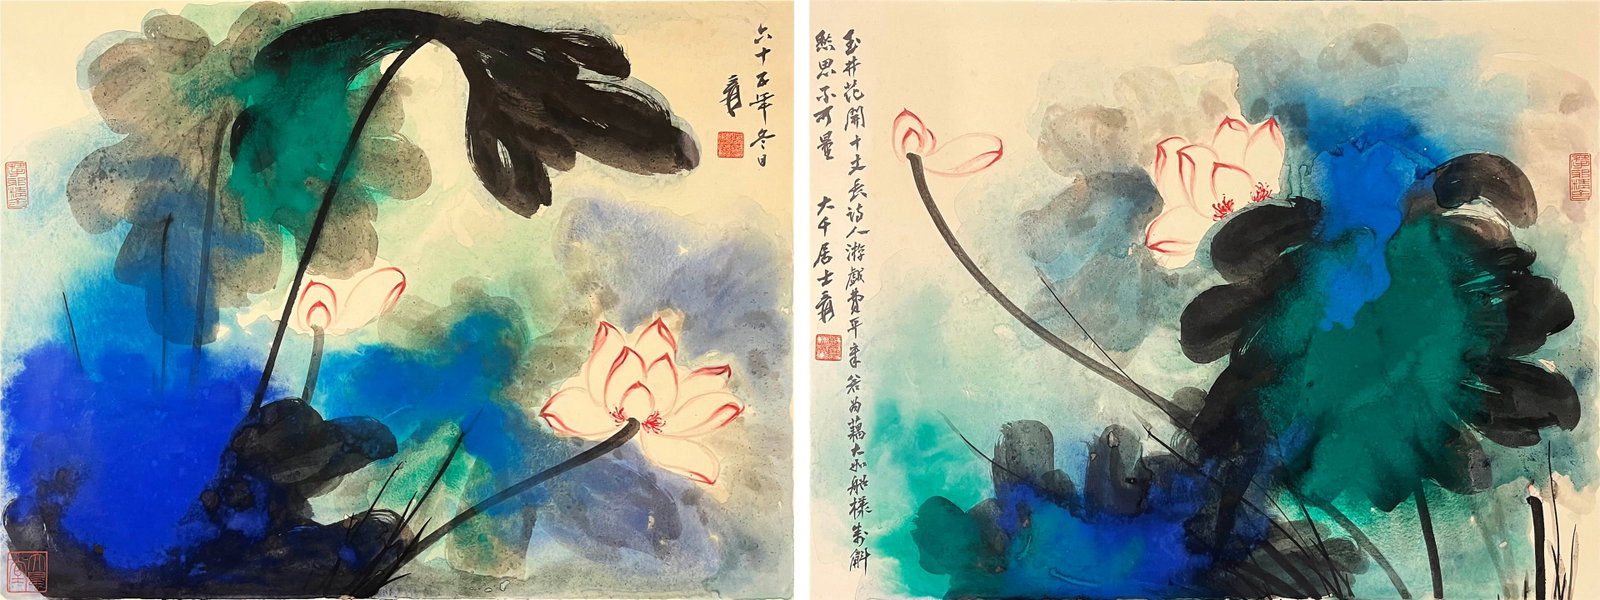 六十五年冬日
爰
玉井花開十丈長詩人游戲費平章若為藕大如船樣萬斛
愁思不可量 大千居士爰